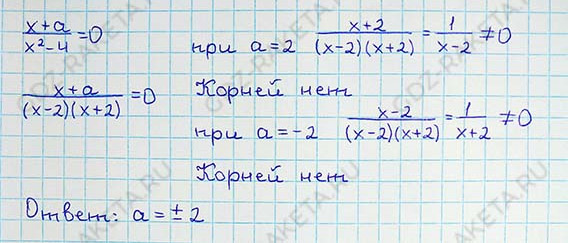 (x+a)/(x²-4) = 0
(x+a)/((x-2)(x+2)) = 0
при a=2 (x+2)/((x-2)(x+2)) = 1/(x-2) ≠ 0
Корней нет
при a=-2 (x-2)/((x-2)(x+2)) = 1/(x+2) ≠ 0
Корней нет
Ответ: a = ± 2
GDZ-RAKETA.RU